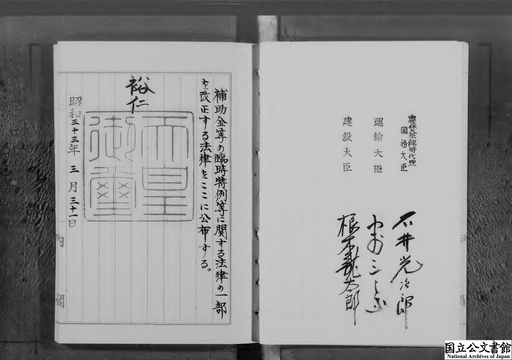 補助金等の臨時特例等に関する法律の一部
を改正する法律をここに公布する。
裕仁
天皇
御璽
昭和三十三年三月三十一日
内閣
農林大臣臨時代理
国務大臣
石井光次郎
運輸大臣
建設大臣
根本龍太郎
国立公文書館
National Archives of Japan